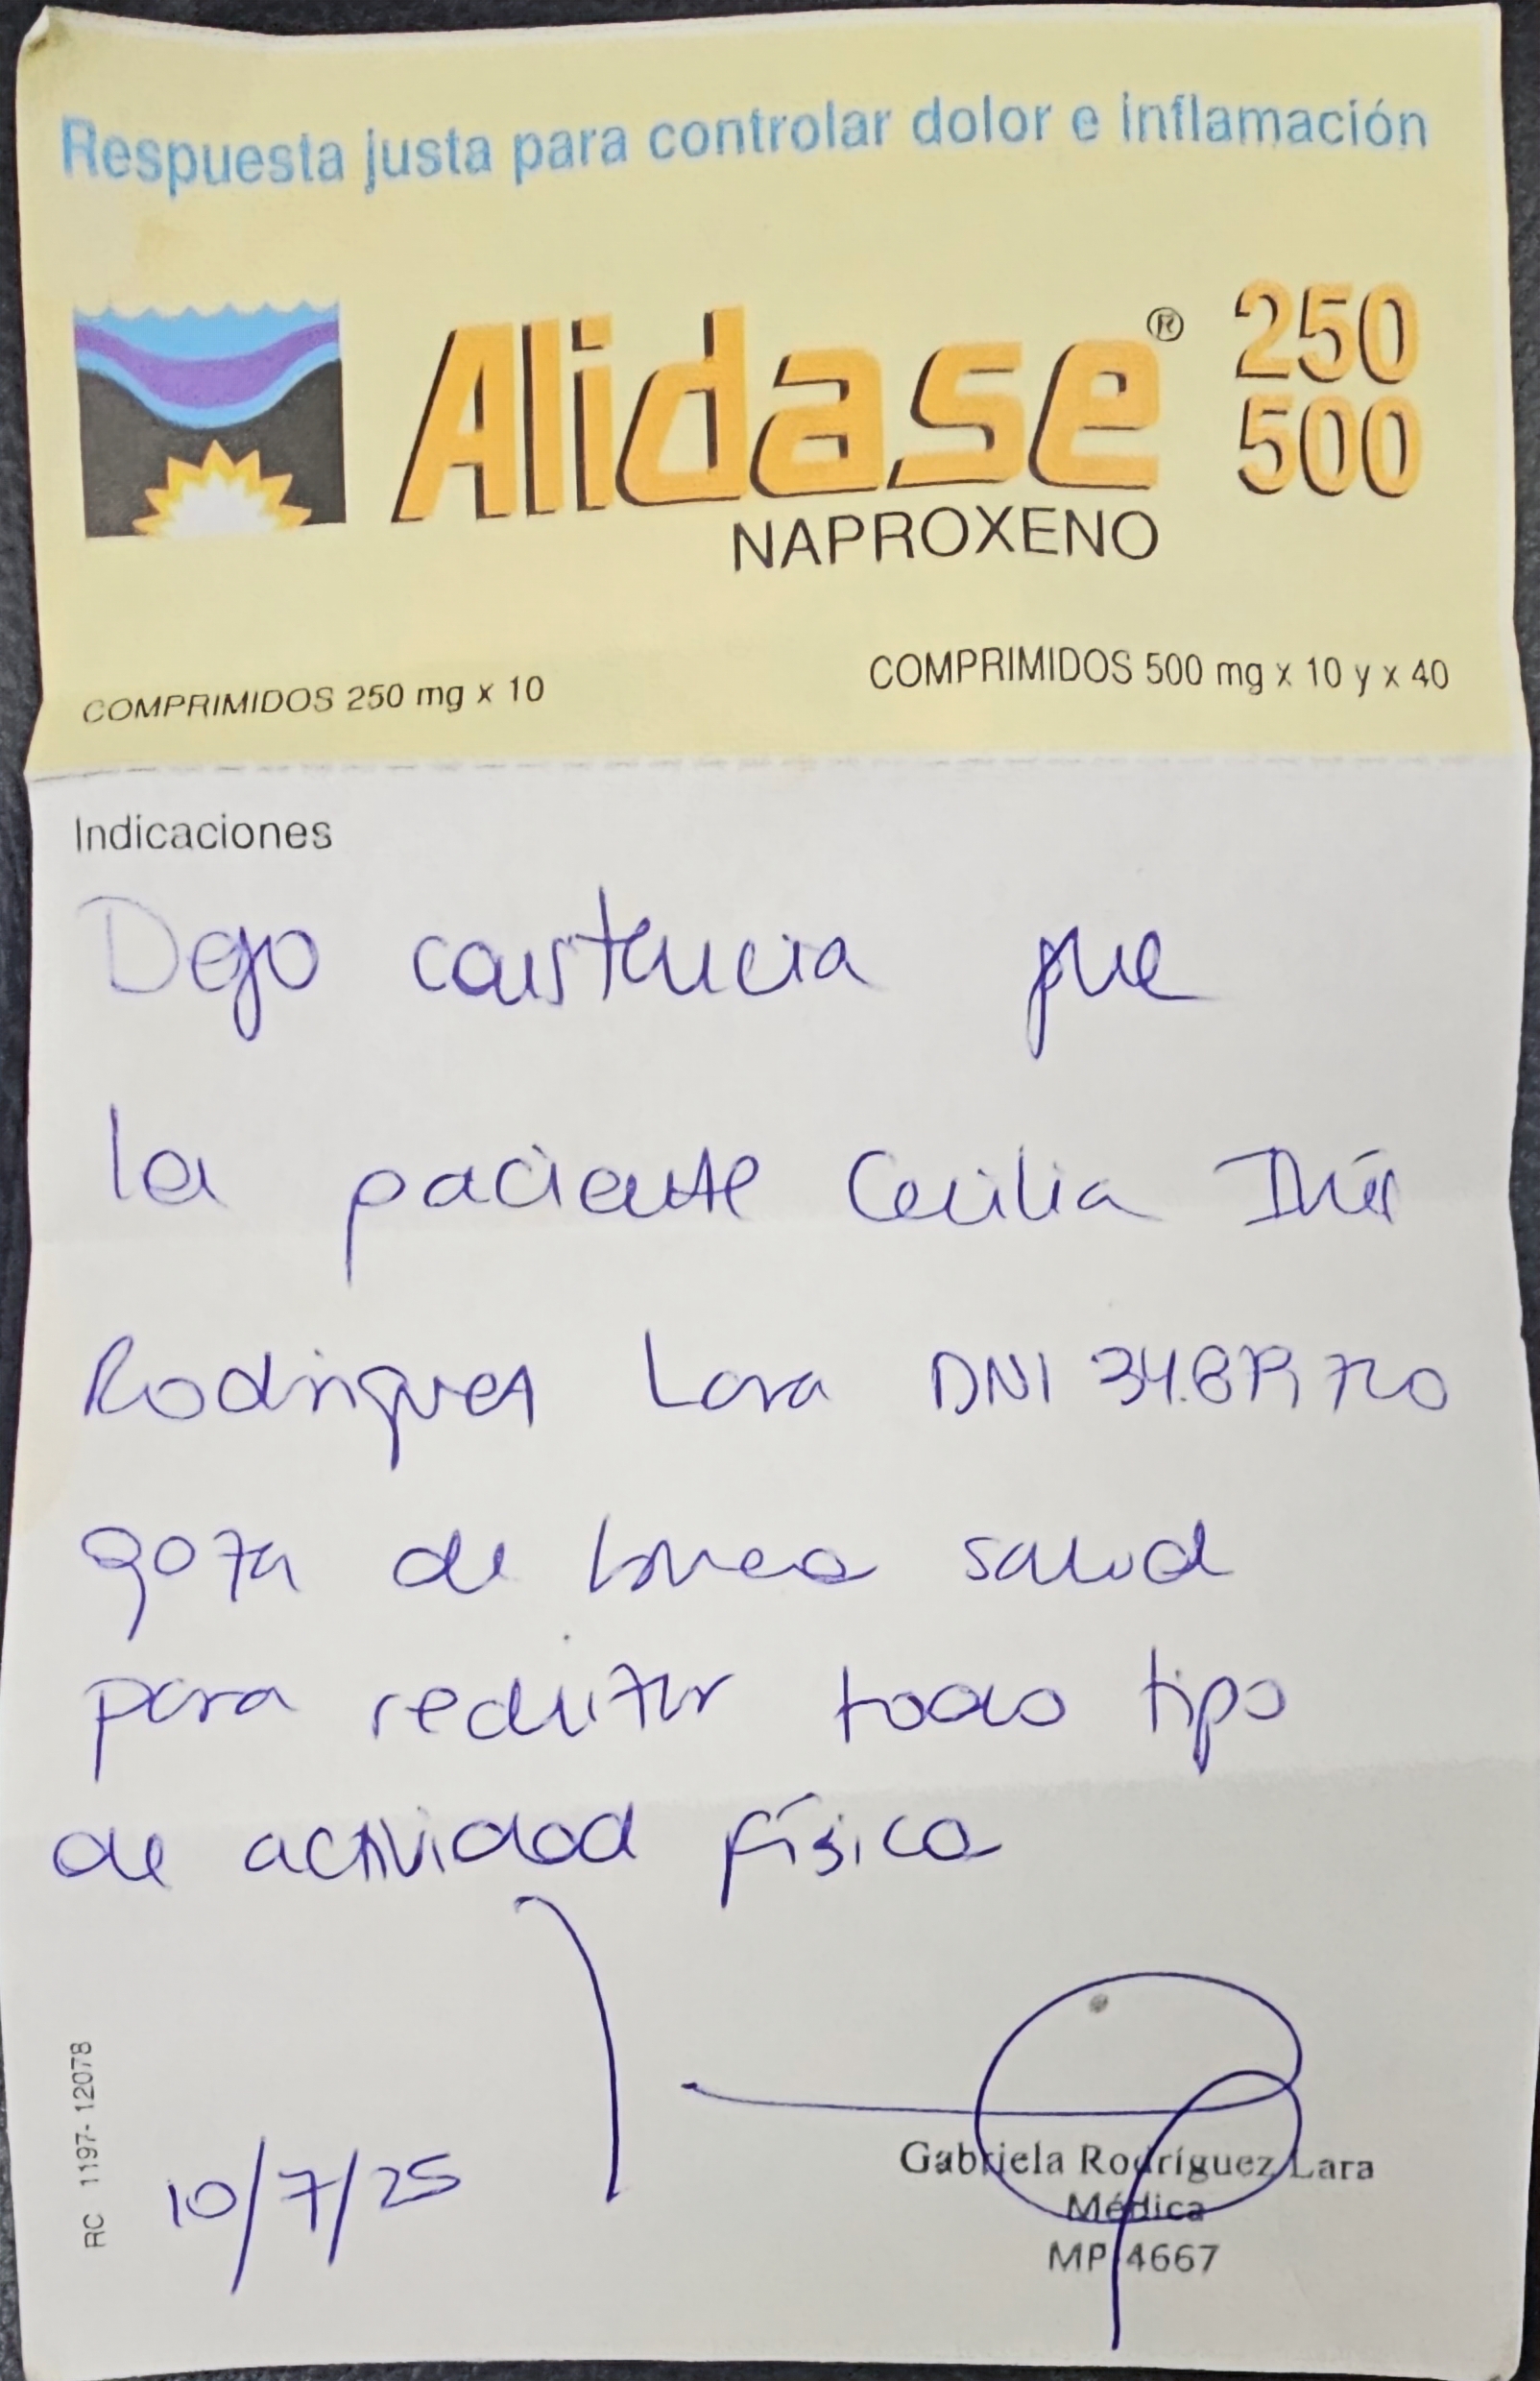 Respuesta justa para controlar dolor e inflamación
Alidase® 250 500
NAPROXENO
COMPRIMIDOS 250 mg x 10
COMPRIMIDOS 500 mg x 10 y x 40
Indicaciones
Dejo constancia que
la paciente Cecilia Inés
Rodriguez Lara DNI
goza de buena salud
para realizar todo tipo
de actividad física
10/7/25
Gabriela Rodríguez Lara
Médica
MP 4667
RC 1197- 12078